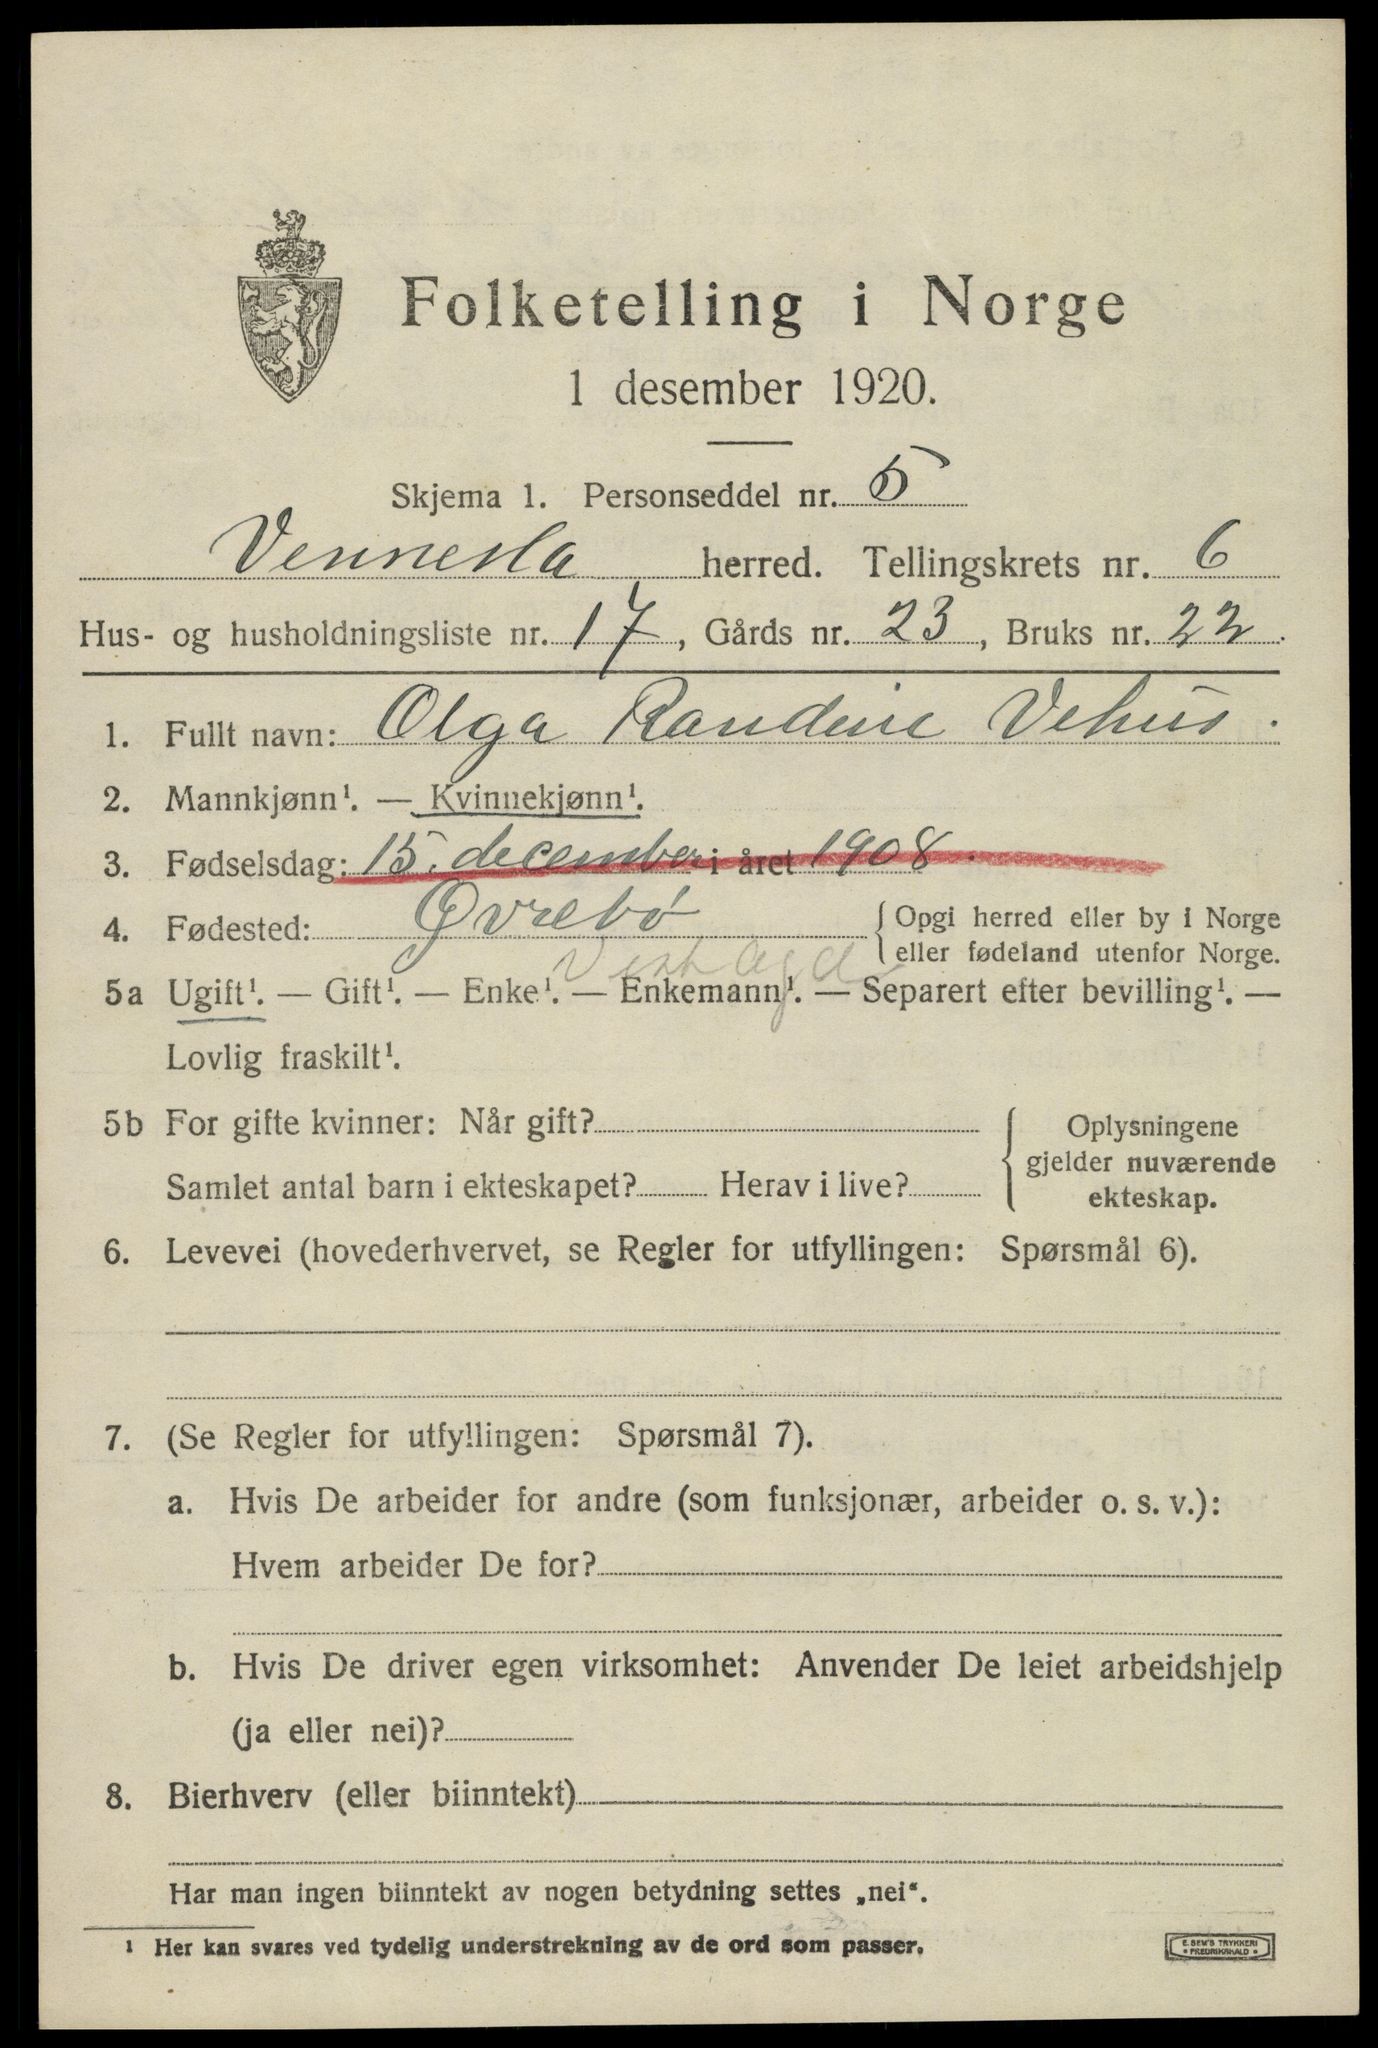 Folketelling i Norge
1 desember 1920.
Skjema 1. Personseddel nr. 5
Vennesla herred. Tellingskrets nr. 6
Hus- og husholdningsliste nr. 17, Gårds nr. 23, Bruks nr. 22.
1. Fullt navn: Olga Randine Vehus.
2. Mannkjønn¹. — Kvinnekjønn¹.
3. Fødselsdag: 15. december i året 1908.
4. Fødested: Øvrebø {Opgi herred eller by i Norge
eller fødeland utenfor Norge.
Vest Agd
5a Ugift¹. — Gift¹. — Enke¹. — Enkemann¹. — Separert efter bevilling¹. —
Lovlig fraskilt¹.
5b For gifte kvinner: Når gift? {Oplysningene
gjelder nuværende
Samlet antal barn i ekteskapet? Herav i live?
ekteskap.
6. Levevei (hovederhvervet, se Regler for utfyllingen: Spørsmål 6).
7. (Se Regler for utfyllingen: Spørsmål 7).
a. Hvis De arbeider for andre (som funksjonær, arbeider o. s. v.):
Hvem arbeider De for?
b. Hvis De driver egen virksomhet: Anvender De leiet arbeidshjelp
(ja eller nei)?
8. Bierhverv (eller biinntekt)
Har man ingen biinntekt av nogen betydning settes „nei“.
¹ Her kan svares ved tydelig understrekning av de ord som passer.
E. SEM'S TRYKKERI
• FREDRIKSHALD •